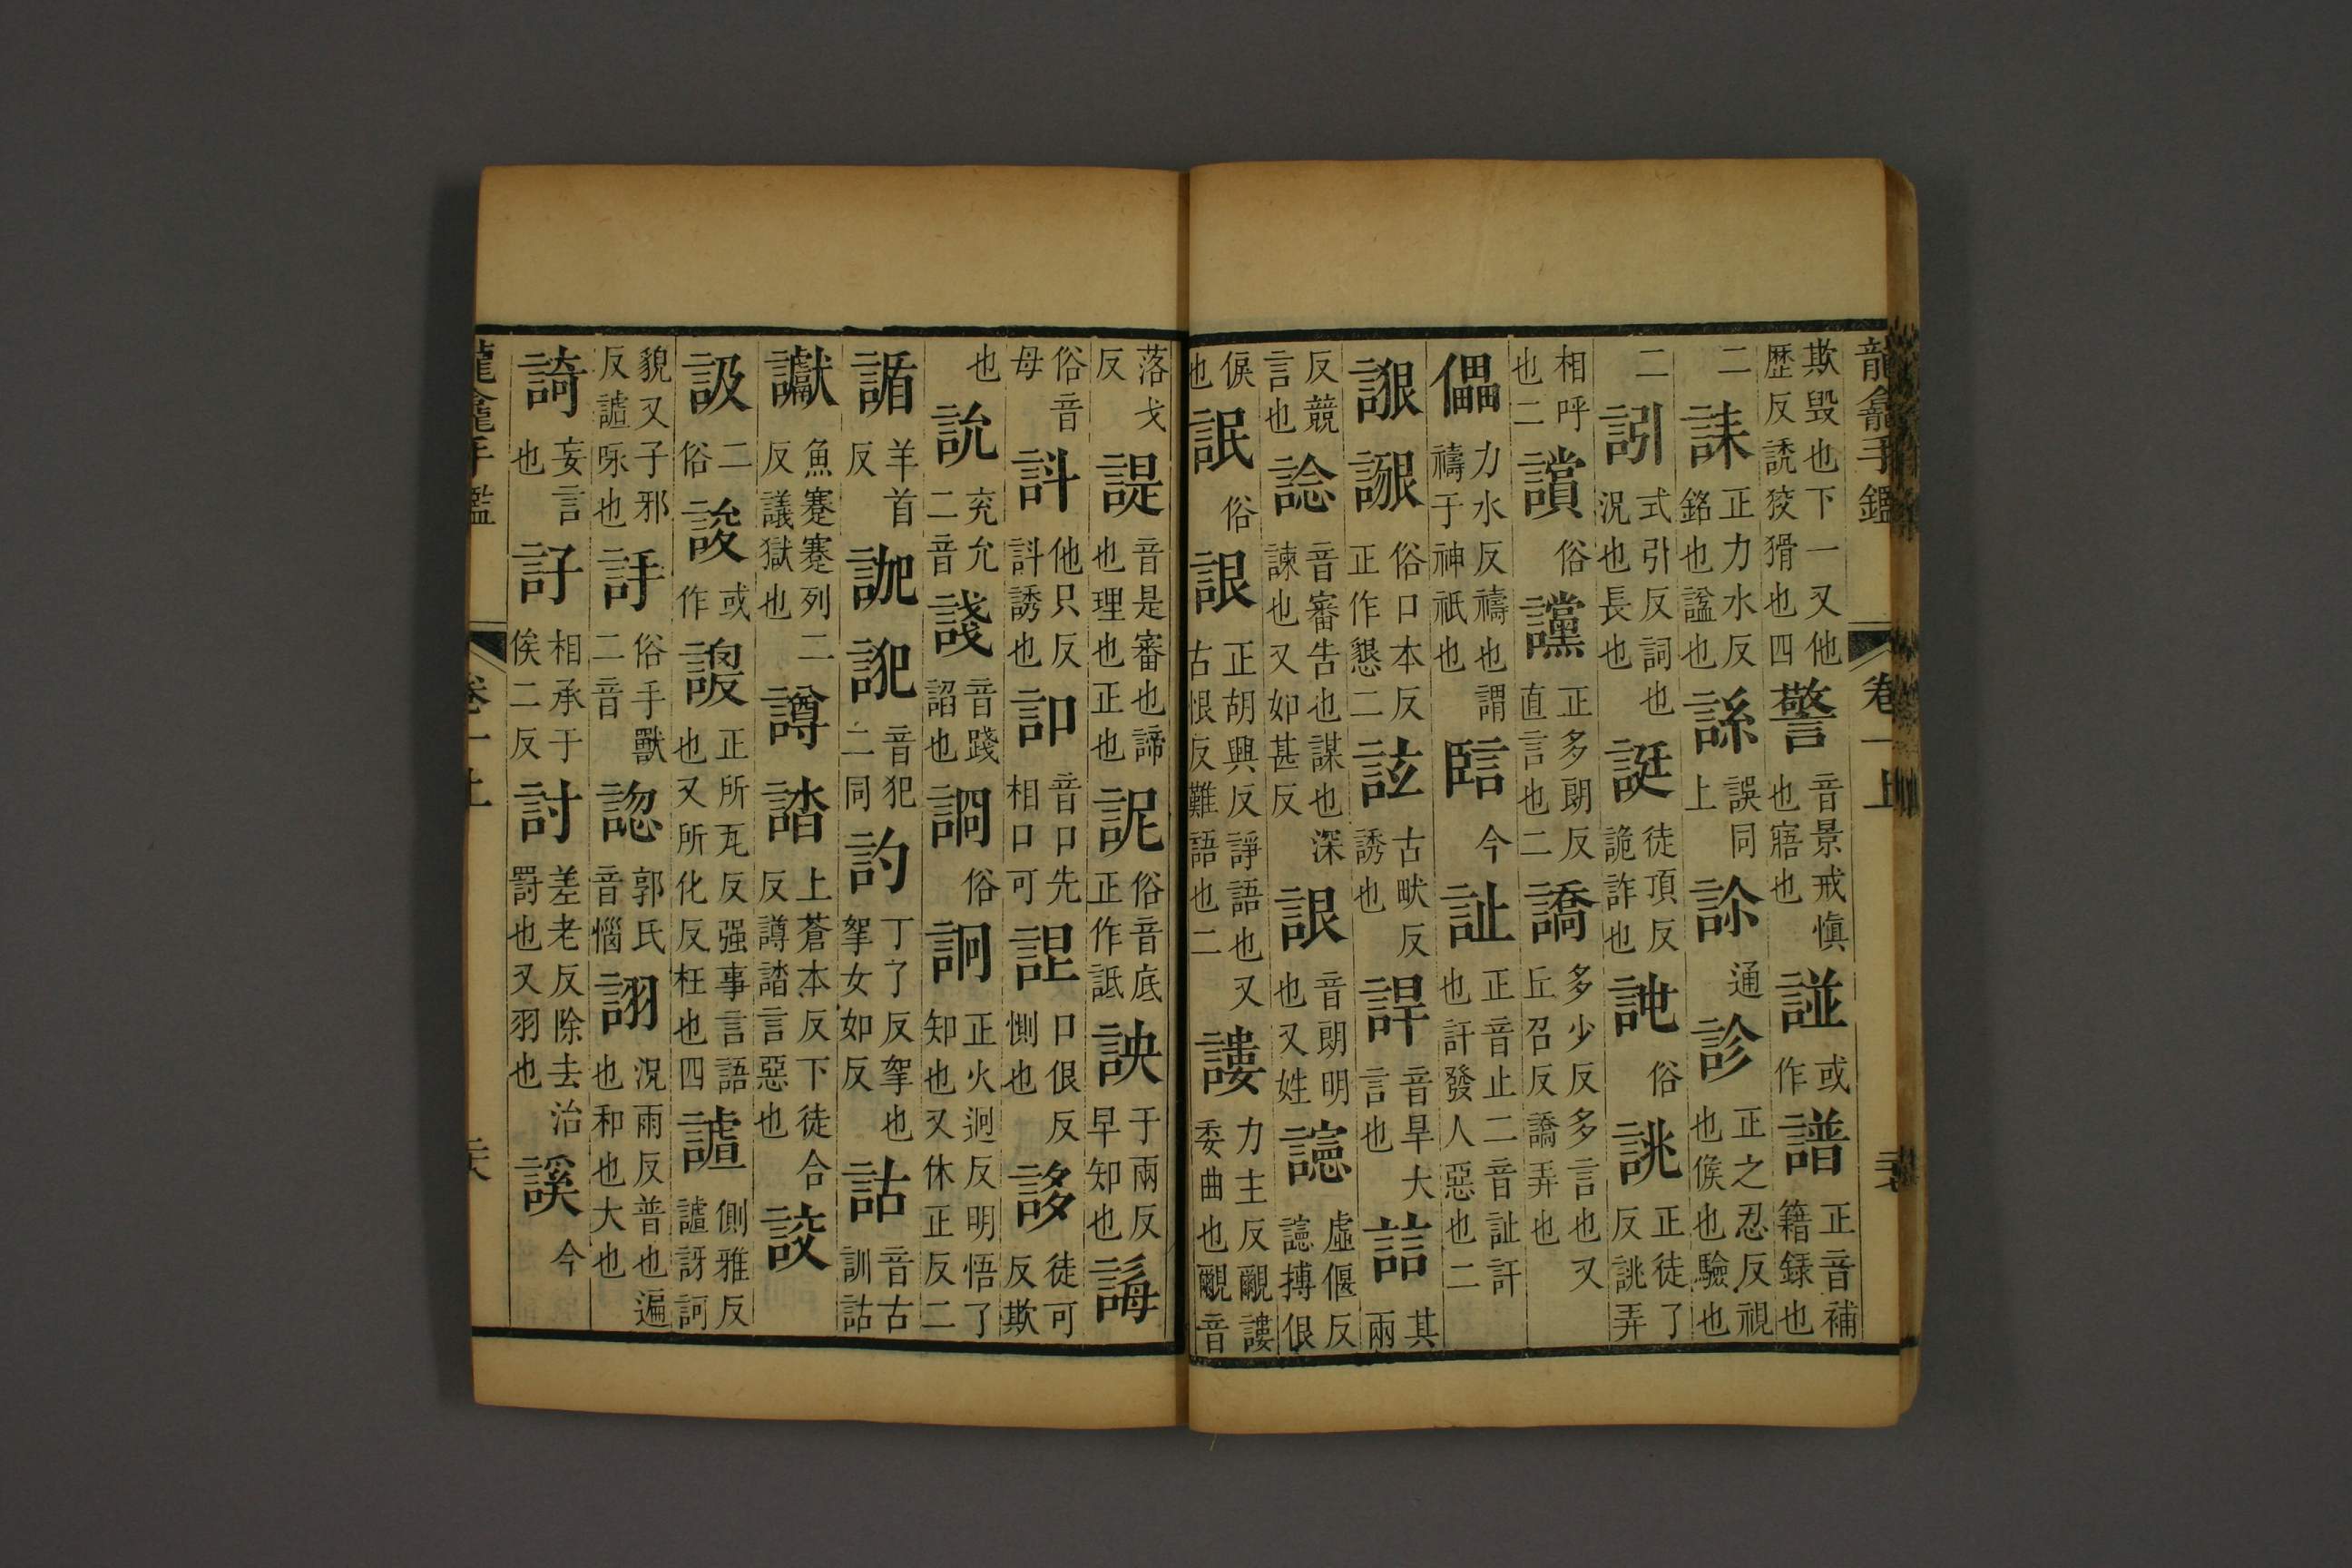 龍龕手鑑 卷一上
欺毀也下一又他歷反誘狡猾也四 警 音景戒愼也寤也 𧨟 或作 譜 正音補籍錄也
二 誄 正力水反銘也謚也 誤同上 通 診 正之忍反視也候也驗也
二 訠 式引反詞也況也長也 誔 徒頂反詭詐也 訑 俗 誂 正徒了反誂弄
相呼也二 俗 讜 正多朗反直言也二 譑 多少反多言也又丘召反譑弄也
力水反禱也謂禱于神祇也 今 訨 正音止二音訨訐也訐發人惡也二
俗口本反正作懇二 詃 古畎反誘也 䛞 音旱大言也 誩 其兩
反競言也 諗 音審告也謀也深諫也又如甚反 音朗明也又姓 虛偃反搏很
戾也 詪 俗 詪 正胡典反諍語也又古恨反難語也二 謱 力主反覼謱委曲也覼音
落戈反 諟 音是審也諦也理也正也 詆 俗音底正作詆 訣 于兩反早知也 誨
俗音母 䚵 他只反䚵誘也 訠 音口先相口可 口很反惻也 𧧼 徒可反欺
也 訦 充允二音 諓 音踐諂也 詗 俗 詗 正火迥反明悟了知也又休正反二
羊首反 音犯二同 訋 丁了反挐也挐女如反 詁 音古訓詁
讞 魚蹇蹇列二反議獄也 譐 誻 上蒼本反下徒合反譐誻言惡也
二俗 或作 正所瓦反强事言語也又所化反枉也四 謯 側雅反謯訝訶
貌又子邪反謯𠯗也 俗手獸二音 認 郭氏音惱 詡 況雨反普也遍也和也大也
䛴 妄言也 訏 相承于俟二反 討 差老反除去治罸也又羽也 謑 今
龍龕手鑑 卷一上